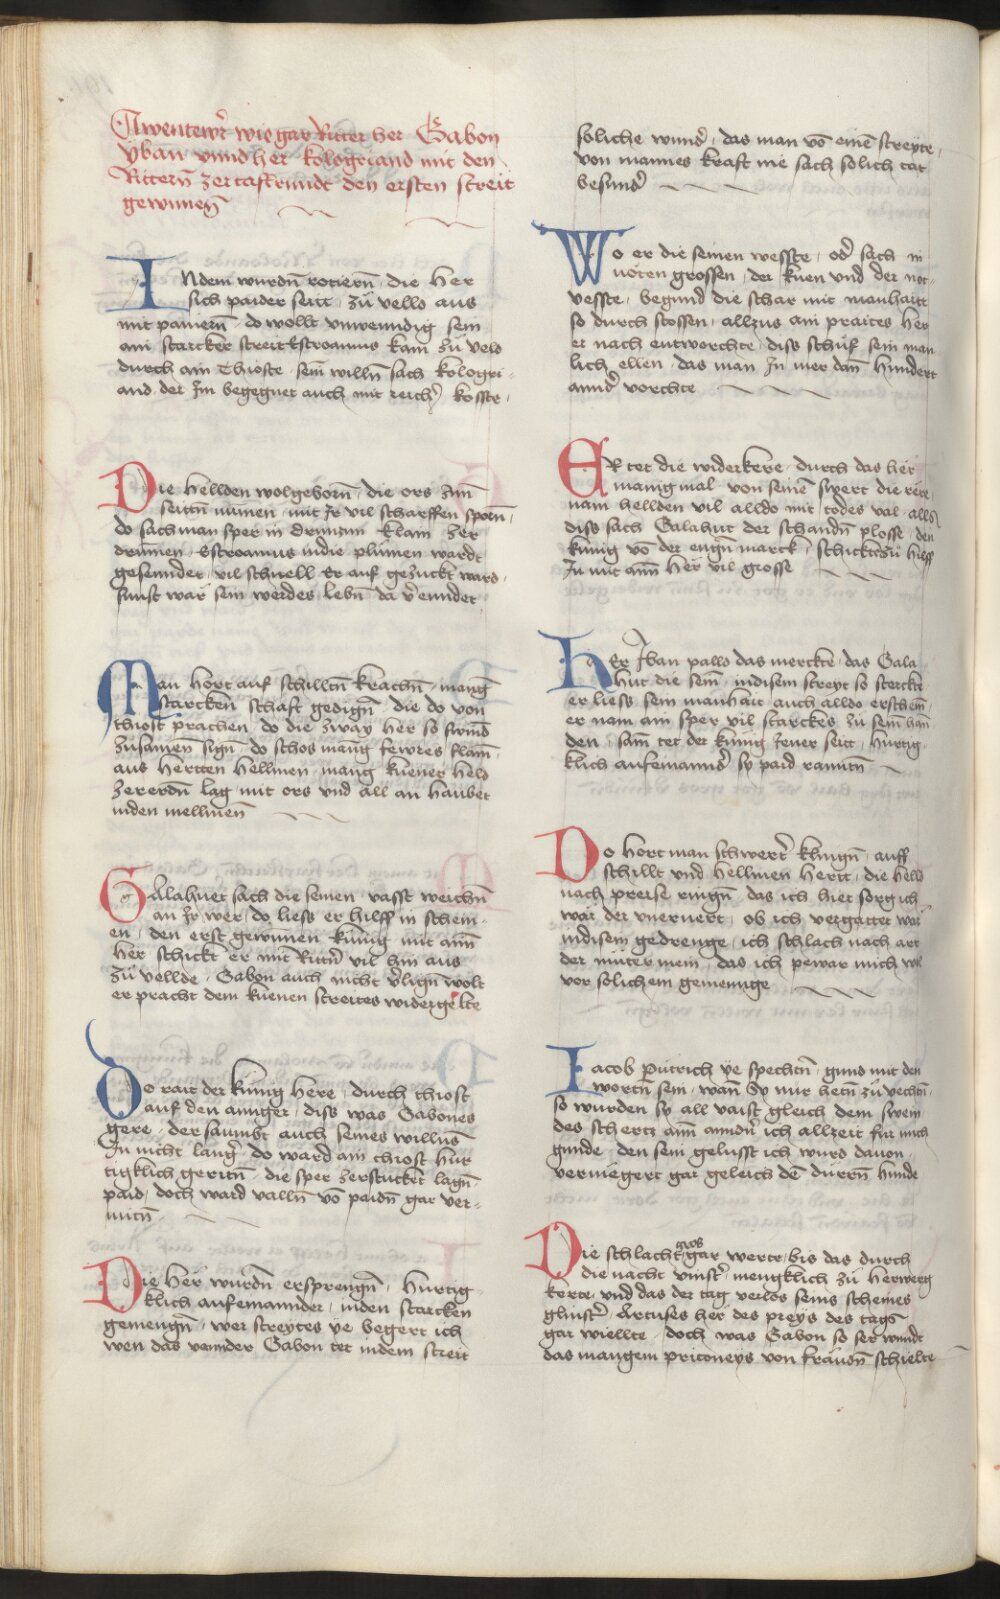 Awentewr̄ wie gar Ritter her Gabon
yban vnnd her kologriand mit den
Rittern̄ zer tafkrundt den ersten streit
gewinnen̄
INdem wurdn̄ rotiern̄ / die her
sich paider seitt / zŭ veldo aus
mit paniern̄ / do wollt vnwenndig sein
ain starcker streit Estroamus kam zŭ velo
durch ain Thioste / sein̄ willn̄ sach kologri-
and der Im begegnet auch mit reich̄ koste /
Die hellden wolgeborn̄ / die ors zum̄
seittn̄ nŭmen / mit Ir vil scharffen sporn̄ /
do sach man sper in drumzun klain zer
drŭmen / Estroamus in die plŭmen wardt
gesennder / vil schnell Er auf gezuckt ward /
sunst war sein werdes lebn̄ da v̄enndet
Man hort auf schilltn̄ krachn̄ / manḡ
starcken̄ schaft gedign̄ die do von
thiost prachen / do die zway her so swind
zŭsamen sign̄ / do schos manḡ fewres flam̄
aus hertten hellmen / mang kŭener held
zererdn̄ lag mit ors vnd all an haubet
in den mellmen̄
GAlahuet sach die seinen vasst weichn̄
an Ir wer / do liess er hilff in schein-
en / den erst gewunen kŭnig mit ain̄
her schickt er mit Rittn̄ vil hin aus
zŭ vellde / Gabon auch nicht v̄lign̄ wolt
er pracht dem kŭenen streites widergelte
Do rait der kŭnig here / durch thiost
auf den ainiger / diss was Gabones
gere / der saumbt auch seines willns̄
In nicht lanḡ / do ward ain thiost hur
tigklich geritn̄ / die sper zerstucket lagn̄
paid / doch ward valln̄ vō paidn̄ gar ver-
mitn̄ /
Die her wurdn̄ ersprengn̄ / hurtig
klich aufeinannder / in den starcken
gemengn̄ / wer streytes ye begert ich
wen das vannder Gabon tet in dem streit
soliche wund̄ / das man vō einē streyte /
von mannes kraft nie sach solich tat
besund̄
Wo er die seinen wesste / od̄ sach in
nŏten grossen / der kŭen vnd der not-
vesste / begund die schar mit manhaitt
so durch stossen / allzus ain praites her
er nach entworchte / diss schŭf sein man
lich ellen / das man In mer dan̄ hundert
annd̄ vorchte
ER tet die widerkere / durch das her
manigmal von seinē swert die rere
nam hellden vil alldo mit todes val / alls
diss sach Galahut der schandn̄ plosse / den
kŭnig vō der engn̄ marck / schickt zŭ hilff
In mit ain̄ her vil grosse
HEr Iban pallo das merckte / das Gala
hut die sein̄ / in disem streyt so sterckt
er liess sein manhait / auch alldo erschein̄ /
er nam ain sper vil starckes zŭ sein̄ han̄
den / sam̄ tet der kŭnig Jener seitt / hurtig
klich aufeinannd̄ sy paid ranntn̄
Do hort man schwert̄ klingn̄ / auff
schillt vnd hellmen hertt / die held
nach preise ringn̄ / das ich hier sorg ich
wär der vnernert / ob ich vergattet wär
in disem gedrenge / ich schlach nach art
der mŭter mein / das ich pewar mich wol
vor solichem gemennge
Iacob Pŭtrich ye spechtn̄ / gund mit den
wortn̄ sein / wan̄ Sy mir hetn̄ zŭ vechtn̄ /
so wurden sy all vaist gleich dem swein
des schertz ain̄ anndn̄ ich allzeit für mich
gunde / den sein gelusst ich wurd davon /
vermegert gar geleich dē dürrn̄ hunde
Die schlacht gros gar werte / bis das durch
die nacht vinst̄ / mengklich zŭ herwerg
kerte / vnd das der tag verlos seins scheines
glinst̄ / Artuses her des preys des tags
gar wiellte / doch was Gabon so ser wundt
das mangem pritoneys von freudn̄ schielte